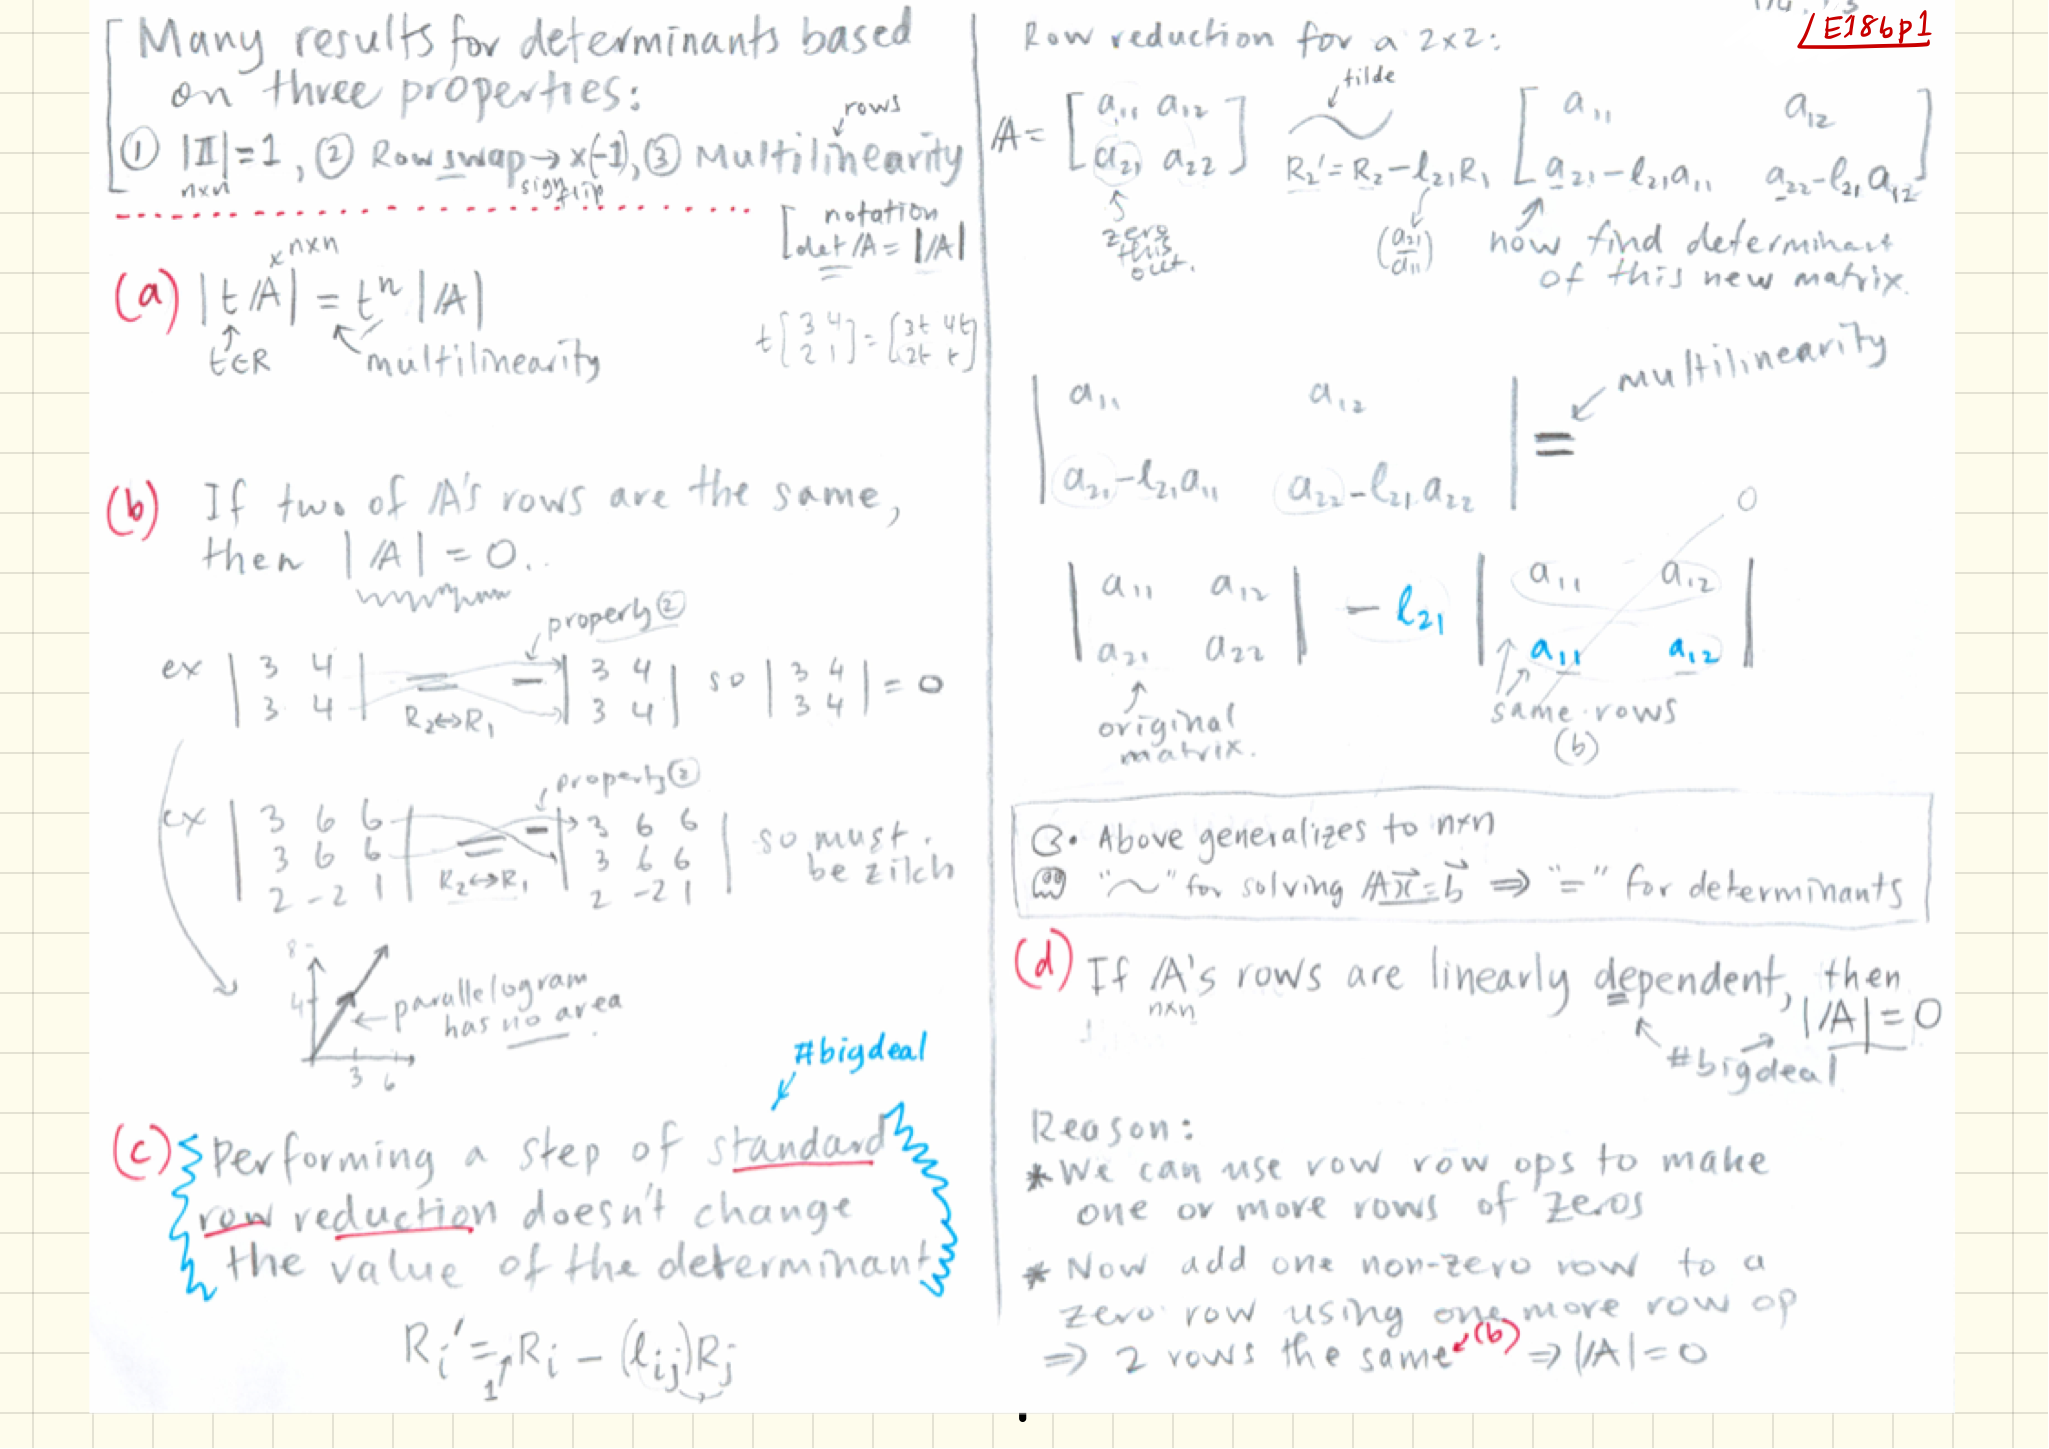 Many results for determinants based
on three properties:
① |𝕀| = 1, ② Row swap → x(-1), ③ Multilinearity
nxn
sign flip
rows
[notation
det /A = |/A|
nxn
(a) |t /A| = tⁿ |/A|
t∈R
multilinearity
t[3 4; 2 1] = [3t 4t; 2t t]
(b) If two of /A's rows are the same,
then |/A| = 0.
property ②
ex |3 4; 3 4| = -|3 4; 3 4| so |3 4; 3 4| = 0
R₂↔R₁
property ②
ex |3 6 6; 3 6 6; 2 -2 1| = -|3 6 6; 3 6 6; 2 -2 1| so must
be zilch
R₂↔R₁
8
4
3 6
parallelogram
has no area
#bigdeal
(c) Performing a step of standard
row reduction doesn't change
the value of the determinant
Rᵢ' = Rᵢ - (lᵢⱼ)Rⱼ
1
/E18bp1
Row reduction for a 2x2:
tilde
/A = [a₁₁ a₁₂; a₂₁ a₂₂] ~ [a₁₁ a₁₂; a₂₁-l₂₁a₁₁ a₂₂-l₂₁a₁₂]
R₂' = R₂ - l₂₁R₁
zero
this
out.
(a₂₁/a₁₁)
now find determinant
of this new matrix.
|a₁₁ a₁₂; a₂₁-l₂₁a₁₁ a₂₂-l₂₁a₂₂| =
multilinearity
0
|a₁₁ a₁₂; a₂₁ a₂₂| - l₂₁ |a₁₁ a₁₂; a₁₁ a₁₂|
original
matrix.
same rows
(b)
• Above generalizes to nxn
"~" for solving /Ax⃗=b⃗ ⇒ "=" for determinants
(d) If /A's rows are linearly dependent, then
nxn
|/A| = 0
#bigdeal
Reason:
* We can use row row ops to make
one or more rows of zeros
* Now add one non-zero row to a
zero row using one more row op
⇒ 2 rows the same (b) ⇒ |/A| = 0